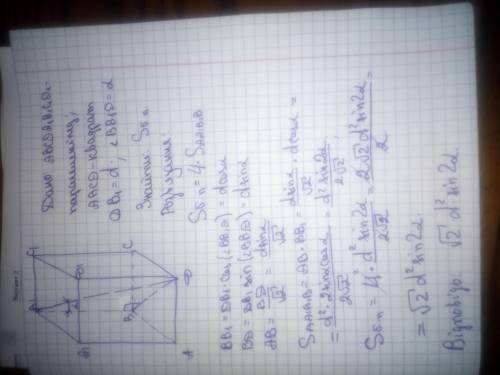 Дано ABCDA₁B₁C₁D₁-
паралелепіпед,
ABCD-квадрат
DB₁=d; ∠BB₁D=α
Знайти: Sб.п
Розв'язання:
Sб.п = 4·SAA₁B₁B
BB₁ = DB₁·cos(∠BB₁D) = dcosα
BD = DB₁·sin(∠BB₁D) = dsinα
AB = BD/√2 = dsinα/√2
SAA₁B₁B = AB·BB₁ = dsinα/√2 · dcosα =
= d²·2sinαcosα/2√2 = d²sin2α/2√2
Sб.п = 4·d²sin2α/2√2 = 2√2d²sin2α/2 =
= √2d²sin2α
Відповідь: √2 d² sin2α
A₁
B₁
C₁
D₁
A
B
C
D